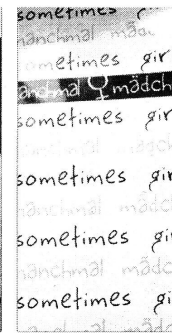 sometimes
manchmal mäd
ometimes gir
anchmal mädch
sometimes gir
manchmal mädch
sometimes gir
manchmal mädch
sometimes gi
manchmal mädc
sometimes gi